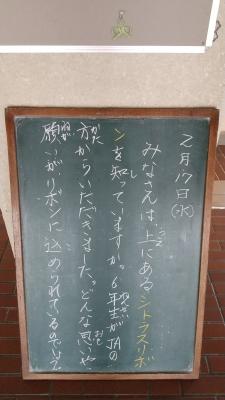 2月17日(水)
みなさんは、上にあるシトラスリボ
ンを知っていますか。6年生がJAの
方からいただきました。どんな思いや
願いが、リボンに込められているのでしょう